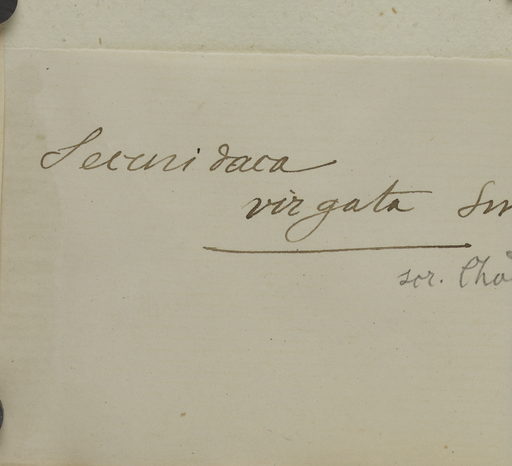 Securidaca
virgata Sw
scr. Cho